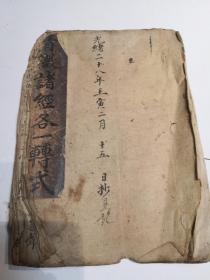 光緒二十八年壬寅二月 十五 日抄
諸經各一轉式